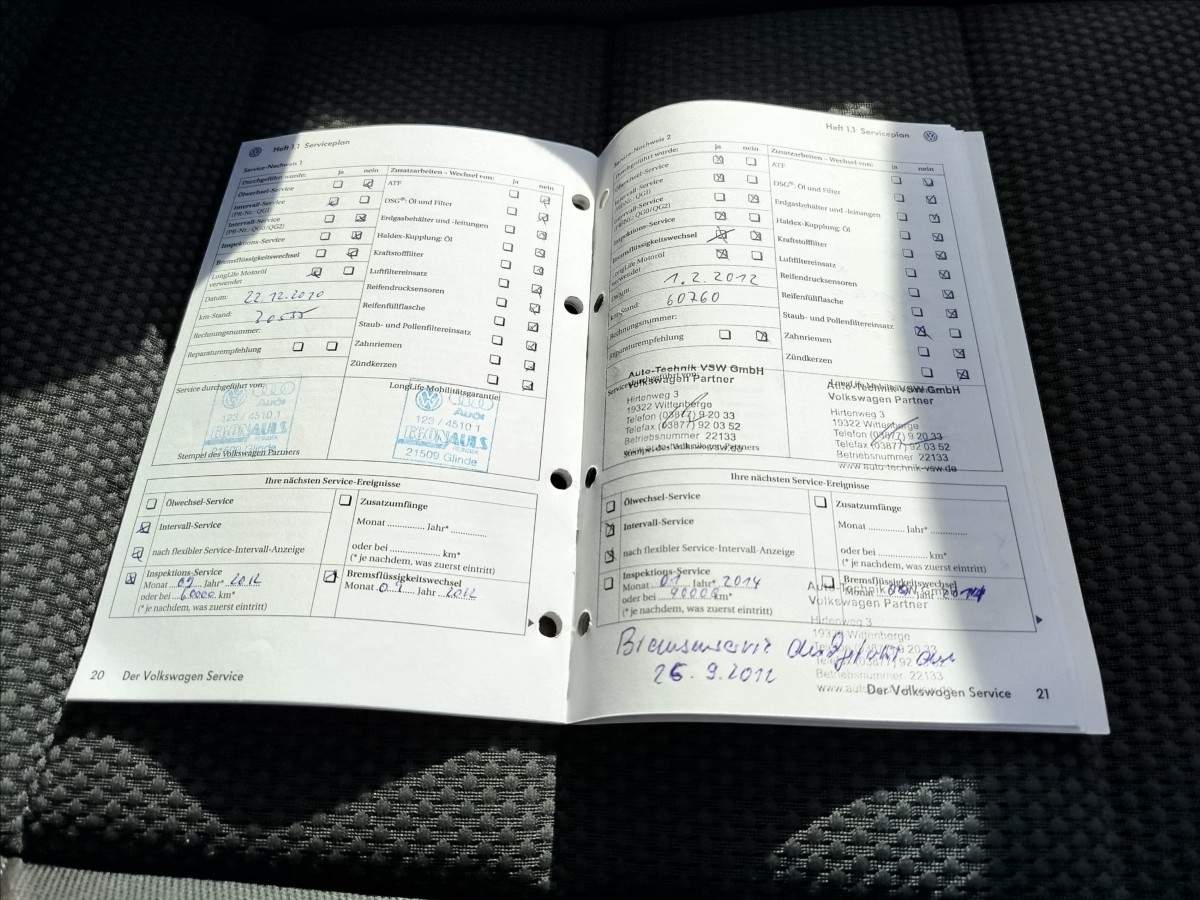 Heft 1.1 Serviceplan
Service-Nachweis 1
Durchgeführt wurde: ja nein
Ölwechsel-Service
Intervall-Service
(PR-Nr.: QG1)
Intervall-Service
(PR-Nr.: QG0/QG2)
Inspektions-Service
Bremsflüssigkeitswechsel
LongLife Motoröl
verwendet
Datum: 22.12.2010
km-Stand:
Rechnungsnummer:
Reparaturempfehlung
Zusatzarbeiten - Wechsel von: ja nein
ATF
DSG®: Öl und Filter
Erdgasbehälter und -leitungen
Haldex-Kupplung: Öl
Kraftstofffilter
Luftfiltereinsatz
Reifendrucksensoren
Reifenfüllflasche
Staub- und Pollenfiltereinsatz
Zahnriemen
Zündkerzen
Service durchgeführt von:
Audi
123 / 4510 1
21509 Glinde
Stempel des Volkswagen Partners
LongLife Mobilitätsgarantie
Audi
123 / 4510 1
21509 Glinde
Ihre nächsten Service-Ereignisse
Ölwechsel-Service
Intervall-Service
nach flexibler Service-Intervall-Anzeige
Inspektions-Service
Monat 09 Jahr* 2012
oder bei 60000 km*
(* je nachdem, was zuerst eintritt)
Zusatzumfänge
Monat Jahr*
oder bei km*
(* je nachdem, was zuerst eintritt)
Bremsflüssigkeitswechsel
Monat 09 Jahr 2012
20 Der Volkswagen Service
Heft 1.1 Serviceplan
Service-Nachweis 2
Durchgeführt wurde: ja nein
Ölwechsel-Service
Intervall-Service
(PR-Nr.: QG1)
Intervall-Service
(PR-Nr.: QG0/QG2)
Inspektions-Service
Bremsflüssigkeitswechsel
LongLife Motoröl
verwendet
Datum: 1.2.2012
km-Stand: 60760
Rechnungsnummer:
Reparaturempfehlung
Zusatzarbeiten - Wechsel von: ja nein
ATF
DSG®: Öl und Filter
Erdgasbehälter und -leitungen
Haldex-Kupplung: Öl
Kraftstofffilter
Luftfiltereinsatz
Reifendrucksensoren
Reifenfüllflasche
Staub- und Pollenfiltereinsatz
Zahnriemen
Zündkerzen
Auto-Technik VSW GmbH
Volkswagen Partner
Hirtenweg 3
19322 Wittenberge
Telefon (03877) 9 20 33
Telefax (03877) 92 03 52
Betriebsnummer 22133
Stempel des Volkswagen Partners
Auto-Technik VSW GmbH
Volkswagen Partner
Hirtenweg 3
19322 Wittenberge
Telefon (03877) 9 20 33
Telefax (03877) 92 03 52
Betriebsnummer 22133
www.auto-technik-vsw.de
Ihre nächsten Service-Ereignisse
Ölwechsel-Service
Intervall-Service
nach flexibler Service-Intervall-Anzeige
Inspektions-Service
Monat 01 Jahr* 2014
oder bei 90000 km*
(* je nachdem, was zuerst eintritt)
Zusatzumfänge
Monat Jahr*
oder bei km*
(* je nachdem, was zuerst eintritt)
Bremsflüssigkeitswechsel
Monat Jahr 2014
Auto-Technik VSW GmbH
Volkswagen Partner
Hirtenweg 3
19322 Wittenberge
Betriebsnummer 22133
26.9.2012
Der Volkswagen Service 21